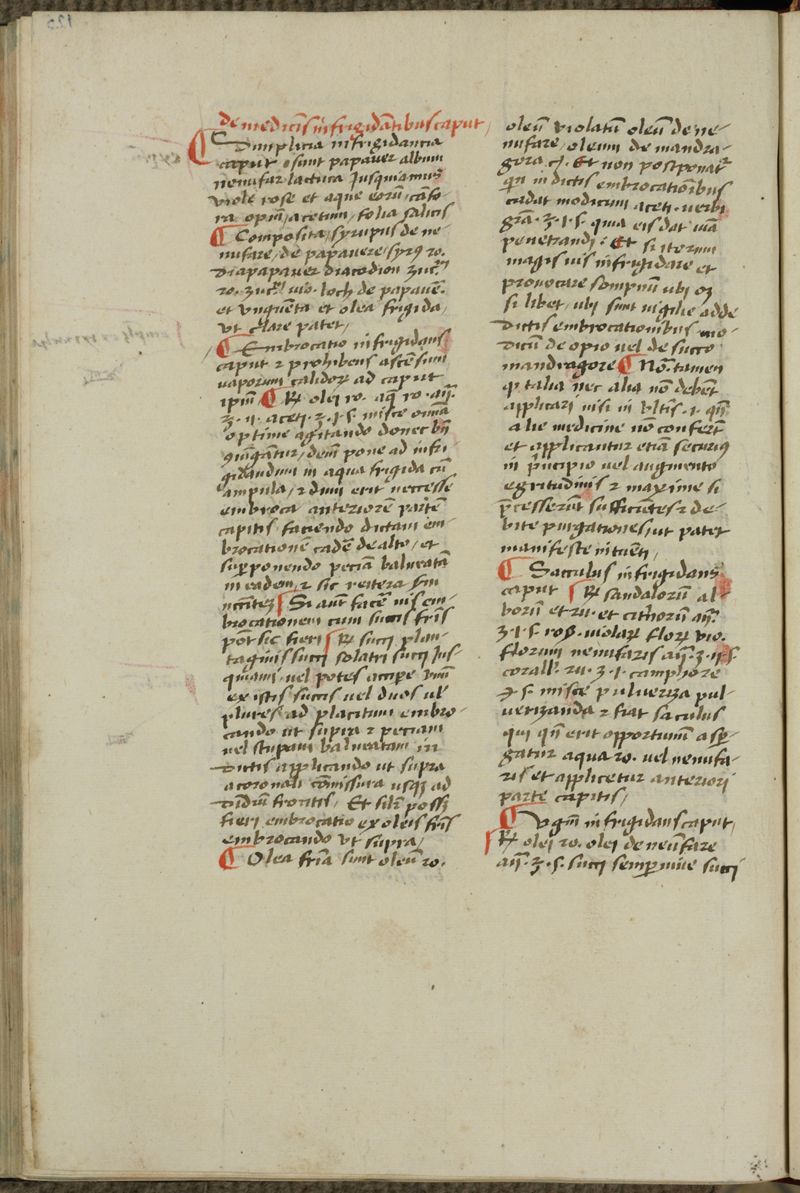 de medicīs īfrigidātibus caput,
¶ Simplicia infrigidantia
caput · sunt papauer album
nenufar lactuca Jusquiamus
viole rose et aque eorū, cāfo-
ra opiū, acetum, folia salicis
¶ Composita, syrupus de ne-
nufare, de papauere, syrꝯ ro.
Diapapauer diacodion zucꝝ
ro. zucꝝ vio. loch de papauē.
et vnguēta et olea frigida,
vt clare patet,
¶ Embrocatio infrigidans
caput ⁊ prohibens ascēsum
vaporum calidoꝝ ad caput
ipm̄ ¶ ℞ olei ro. aq̄ ro. an̄.
ʒ. ij. aceti. ʒ. j. s. misce oīa
optime agitando donec bn̄
guīgātur, deīn pone ad infri
gidandum in aqua frigida cū
ampula, ⁊ dum erit neccesse
embroca anteriorē partē
capitis faciendo dictam em-
brocationē cadē de alto, et
supponendo peciā balneatā
in eadem, ⁊ sic reitera sm̄
Si aūt facē vis em-
brocationem cum succis frīs
pōt sic fieri ℞ succi plan-
taginis succi solatri succi Jus-
quiami, vel potes accipe vnū
ex istis succis vel duos vl̄
plures ad placitum embro-
cando ut supra ⁊ peciam
vel stupam balneatam in
dictis applicando ut supra
a coronali cōmissura usqꝫ ad
frontis, Et silr̄ possꝫ
fieri embrocatio ex oleis frīs
embrocando vt supra,
¶ Olea frīa sunt oleū ro.
oleū violatū oleū de ne-
nufare, oleum de mandra-
gora ⁊c. Et non postponat̄
qn̄ in dictis embrocatiōibus
cadat modicum aceti. verbi
grā. ʒ. j. s. quia eis dat viā
penetrandi. Et si iterum
magis vis infrigidare et
prouocare sompnū ubi oꝫ
si libet, ubi sunt vigilie adde
dictis embrocationibus mo-
dicū de opio vel de succo
mandragore ¶ Nō. tamen
ꝙ talia nec alia nō debēt
applicari nisi in vltīs. r. qn̄
alie medicine nō conferūt
et applicantur etiā securiꝯ
in prīcipio vel augmento
egritudinis ⁊ maxime si
p̄cesserūt sufficiētes ⁊ de-
bite purgationes, ut patet
manifeste intuēti,
¶ Sacculus infrigidans
caput ℞ sandalorū al-
borū et ru. et cithorū an̄.
ʒ. j. s. roꝝ. violaꝝ floꝝ vio.
florum nenufaris an̄. ʒ. ij. s.
corall. ru. ʒ. j. camphore
s. misce pulueriza pul-
uerizanda ⁊ fiat saculus
qui qn̄ erit opportunū asp̄-
gatur aqua ro. vel nenufa-
ris et applicetur anteriori
parte capitis,
¶ Vngm̄ infrigidans caput,
℞ olei ro. olei de nenufare
an̄. ʒ. s. succi semp̄uiue succi